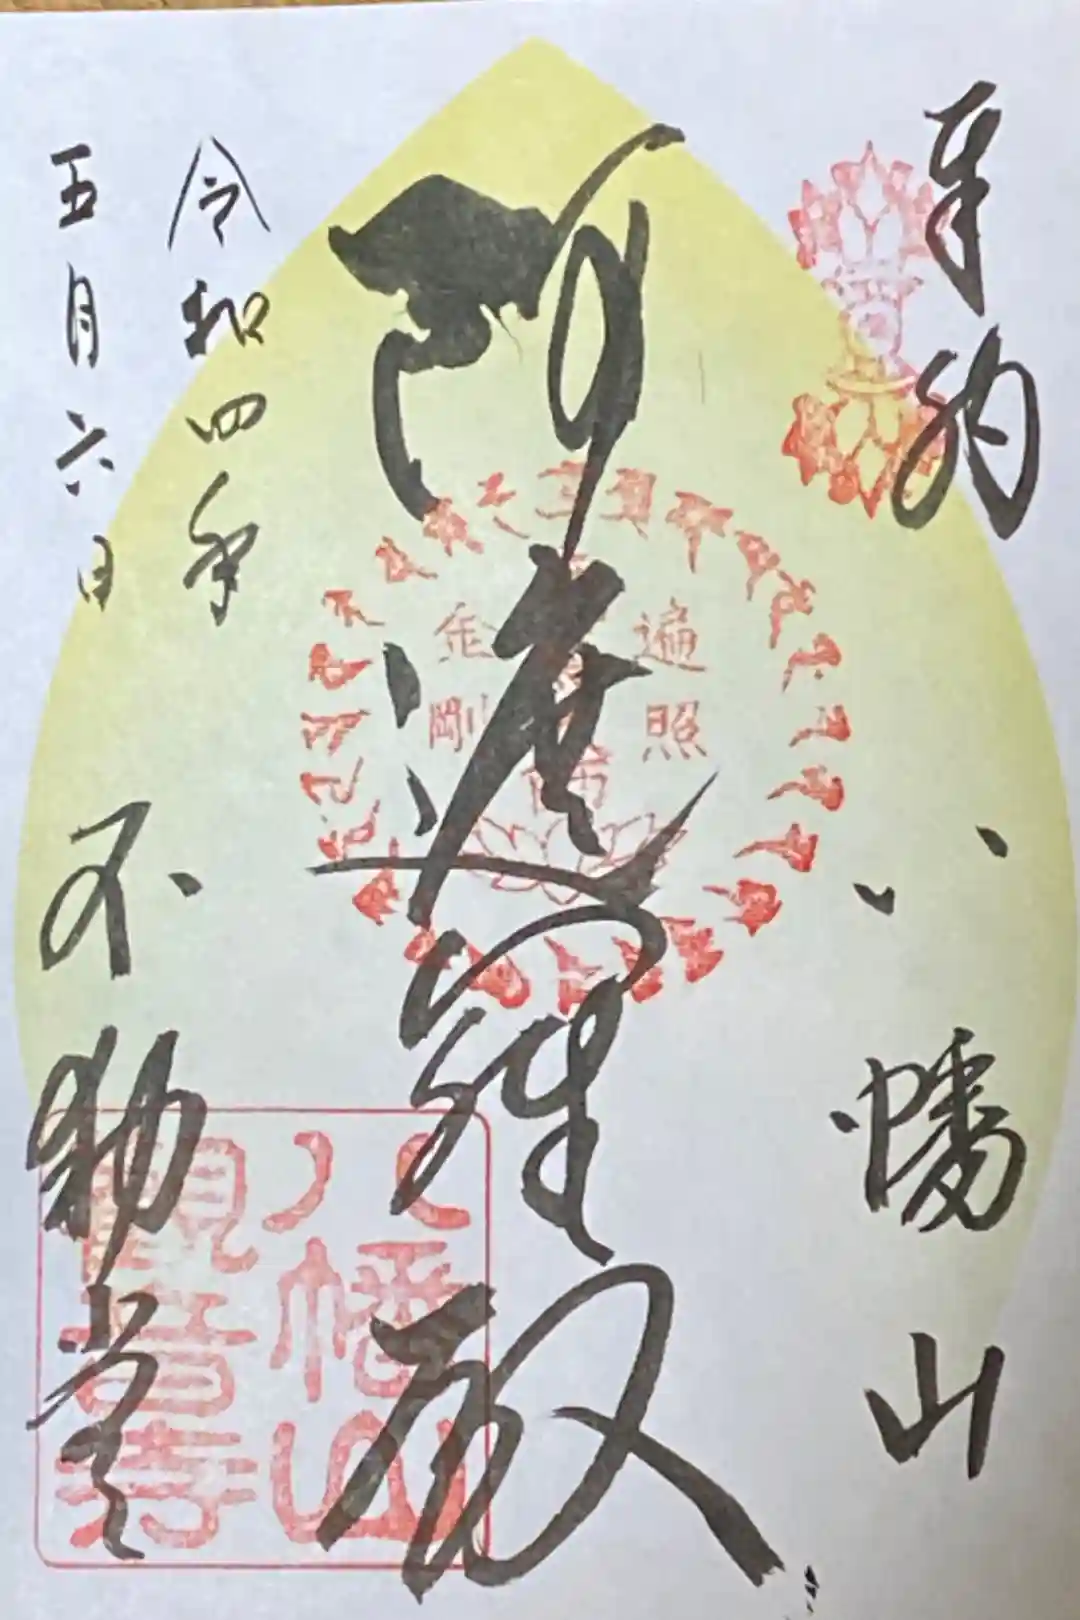 奉納
八幡山
阿遮羅殿
令和四年
五月六日
不動堂
遍照
金剛
八幡山
觀音寺